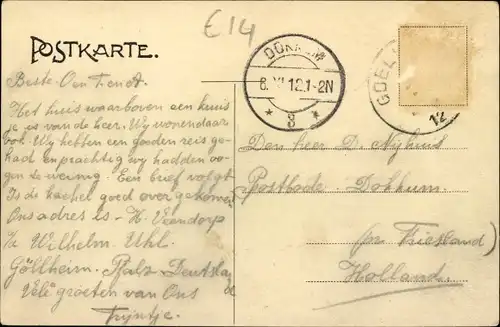 E14
POSTKARTE.
DOKKUM
6.XI.12.1-2N
* 3 *
GOEL
12
Beste Oen T. en A.
Het huis waarboven een kruis
is, is van de heer. Wy wonen daar
ook. Wy hebben een goeden reis ge-
had en prachtig wy hadden oo-
gen te weinig. Een brief volgt
Is de kachel goed over gekomen
Ons adres is - H. Veendorp
p/a Wilhelm. Uhl.
Göllheim. Pfalz Deutsland
Vele groeten van Ons
Trijntje.
Den heer D. Nyhuis
Postbode Dokkum.
(pr Friesland)
Holland.